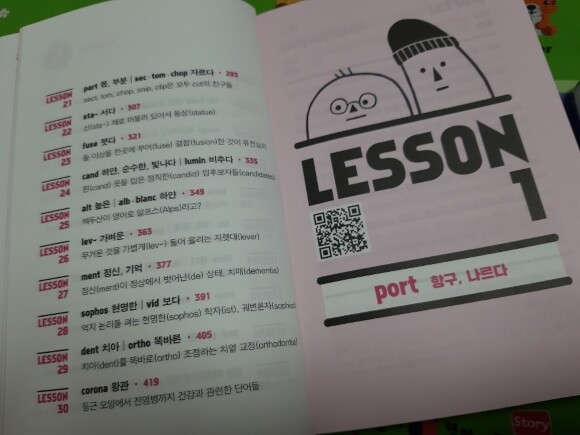 LESSON 21
part 몫, 부분 | sec · tom · chop 자르다 · 293
sect, tom, chop, snip, clip은 모두 cut의 친구들
LESSON 22
sta- 서다 · 307
선(sta-) 채로 머물러 있어서 동상(statue)
LESSON 23
fuse 붓다 · 321
둘 이상을 한곳에 부어(fuse) 결합(fusion)한 것이 퓨전요리
LESSON 24
cand 하얀, 순수한, 빛나다 | lumin 비추다 · 335
흰(cand) 옷을 입은 정직한(candid) 입후보자들(candidates)
LESSON 25
alt 높은 | alb · blanc 하얀 · 349
백두산이 영어로 알프스(Alps)라고?
LESSON 26
lev- 가벼운 · 363
무거운 것을 가볍게(lev-) 들어 올리는 지렛대(lever)
LESSON 27
ment 정신, 기억 · 377
정신(ment)이 정상에서 벗어난(de) 상태, 치매(dementia)
LESSON 28
sophos 현명한 | vid 보다 · 391
억지 논리를 펴는 현명한(sophos) 학자(ist), 궤변론자(sophist)
LESSON 29
dent 치아 | ortho 똑바른 · 405
치아(dent)를 똑바로(ortho) 조정하는 치열 교정(orthodontia)
LESSON 30
corona 왕관 · 419
둥근 모양에서 전염병까지 건강과 관련한 단어들
LESSON
1
port 항구, 나르다
Story